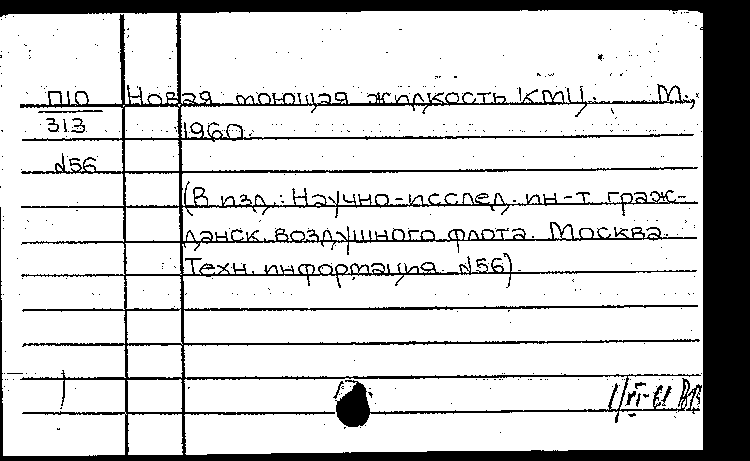 П10 Новая моющая жидкость КМЦ. М.,
313 1960.
№56
(В изд.: Научно-исслед. ин-т граж-
данск. воздушного флота. Москва.
Техн. информация №56).
1/VI-61